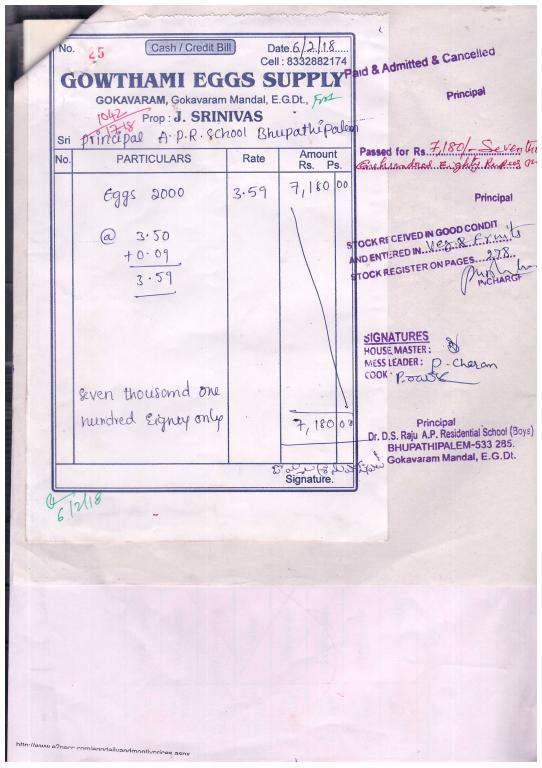 No. 25 Cash / Credit Bill Date. 6/2/18
Cell : 8332882174
GOWTHAMI EGGS SUPPLY
GOKAVARAM, Gokavaram Mandal, E.G.Dt.,
1042
Prop : J. SRINIVAS
Sri Principal A.P.R. School Bhupathipalem
No. PARTICULARS Rate Amount
Rs. Ps.
Eggs 2000 3.59 7,180 00
@ 3.50
+ 0.09
3.59
Seven thousand one
hundred Eighty only
7,180 00
Signature.
6/2/18
Paid & Admitted & Cancelled
Principal
Passed for Rs. 7,180/- Seven
One hundred Eighty Rupees
Principal
STOCK RECEIVED IN GOOD CONDIT
AND ENTERED IN Veg & Fruits
STOCK REGISTER ON PAGES 278
INCHARGE
SIGNATURES
HOUSE MASTER :
MESS LEADER : P. Charan
COOK :
Principal
Dr. D.S. Raju A.P. Residential School (Boys)
BHUPATHIPALEM-533 285.
Gokavaram Mandal, E.G.Dt.